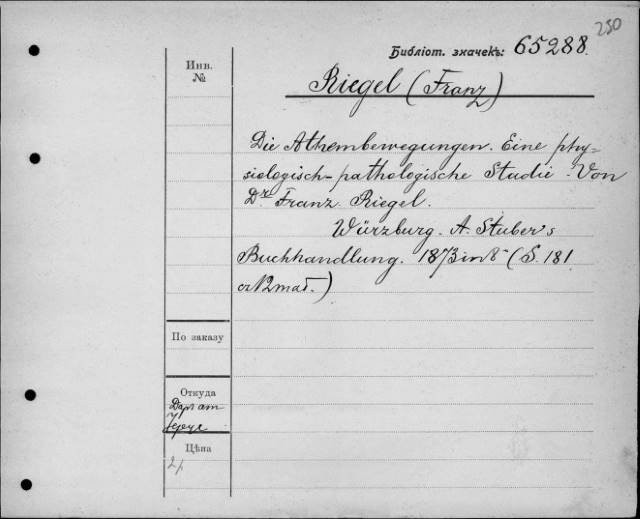 250
Библіот. значекъ: 65288.
Инв.
№
Riegel (Franz)
Die Athembewegungen. Eine phy-
siologisch-pathologische Studie. Von
Dr. Franz Riegel.
Würzburg. A. Stuber's
Buchhandlung. 1873 in 8° (S. 181
cz 12 таб.)
По заказу
Откуда
Даръ от
Цѣна
2р